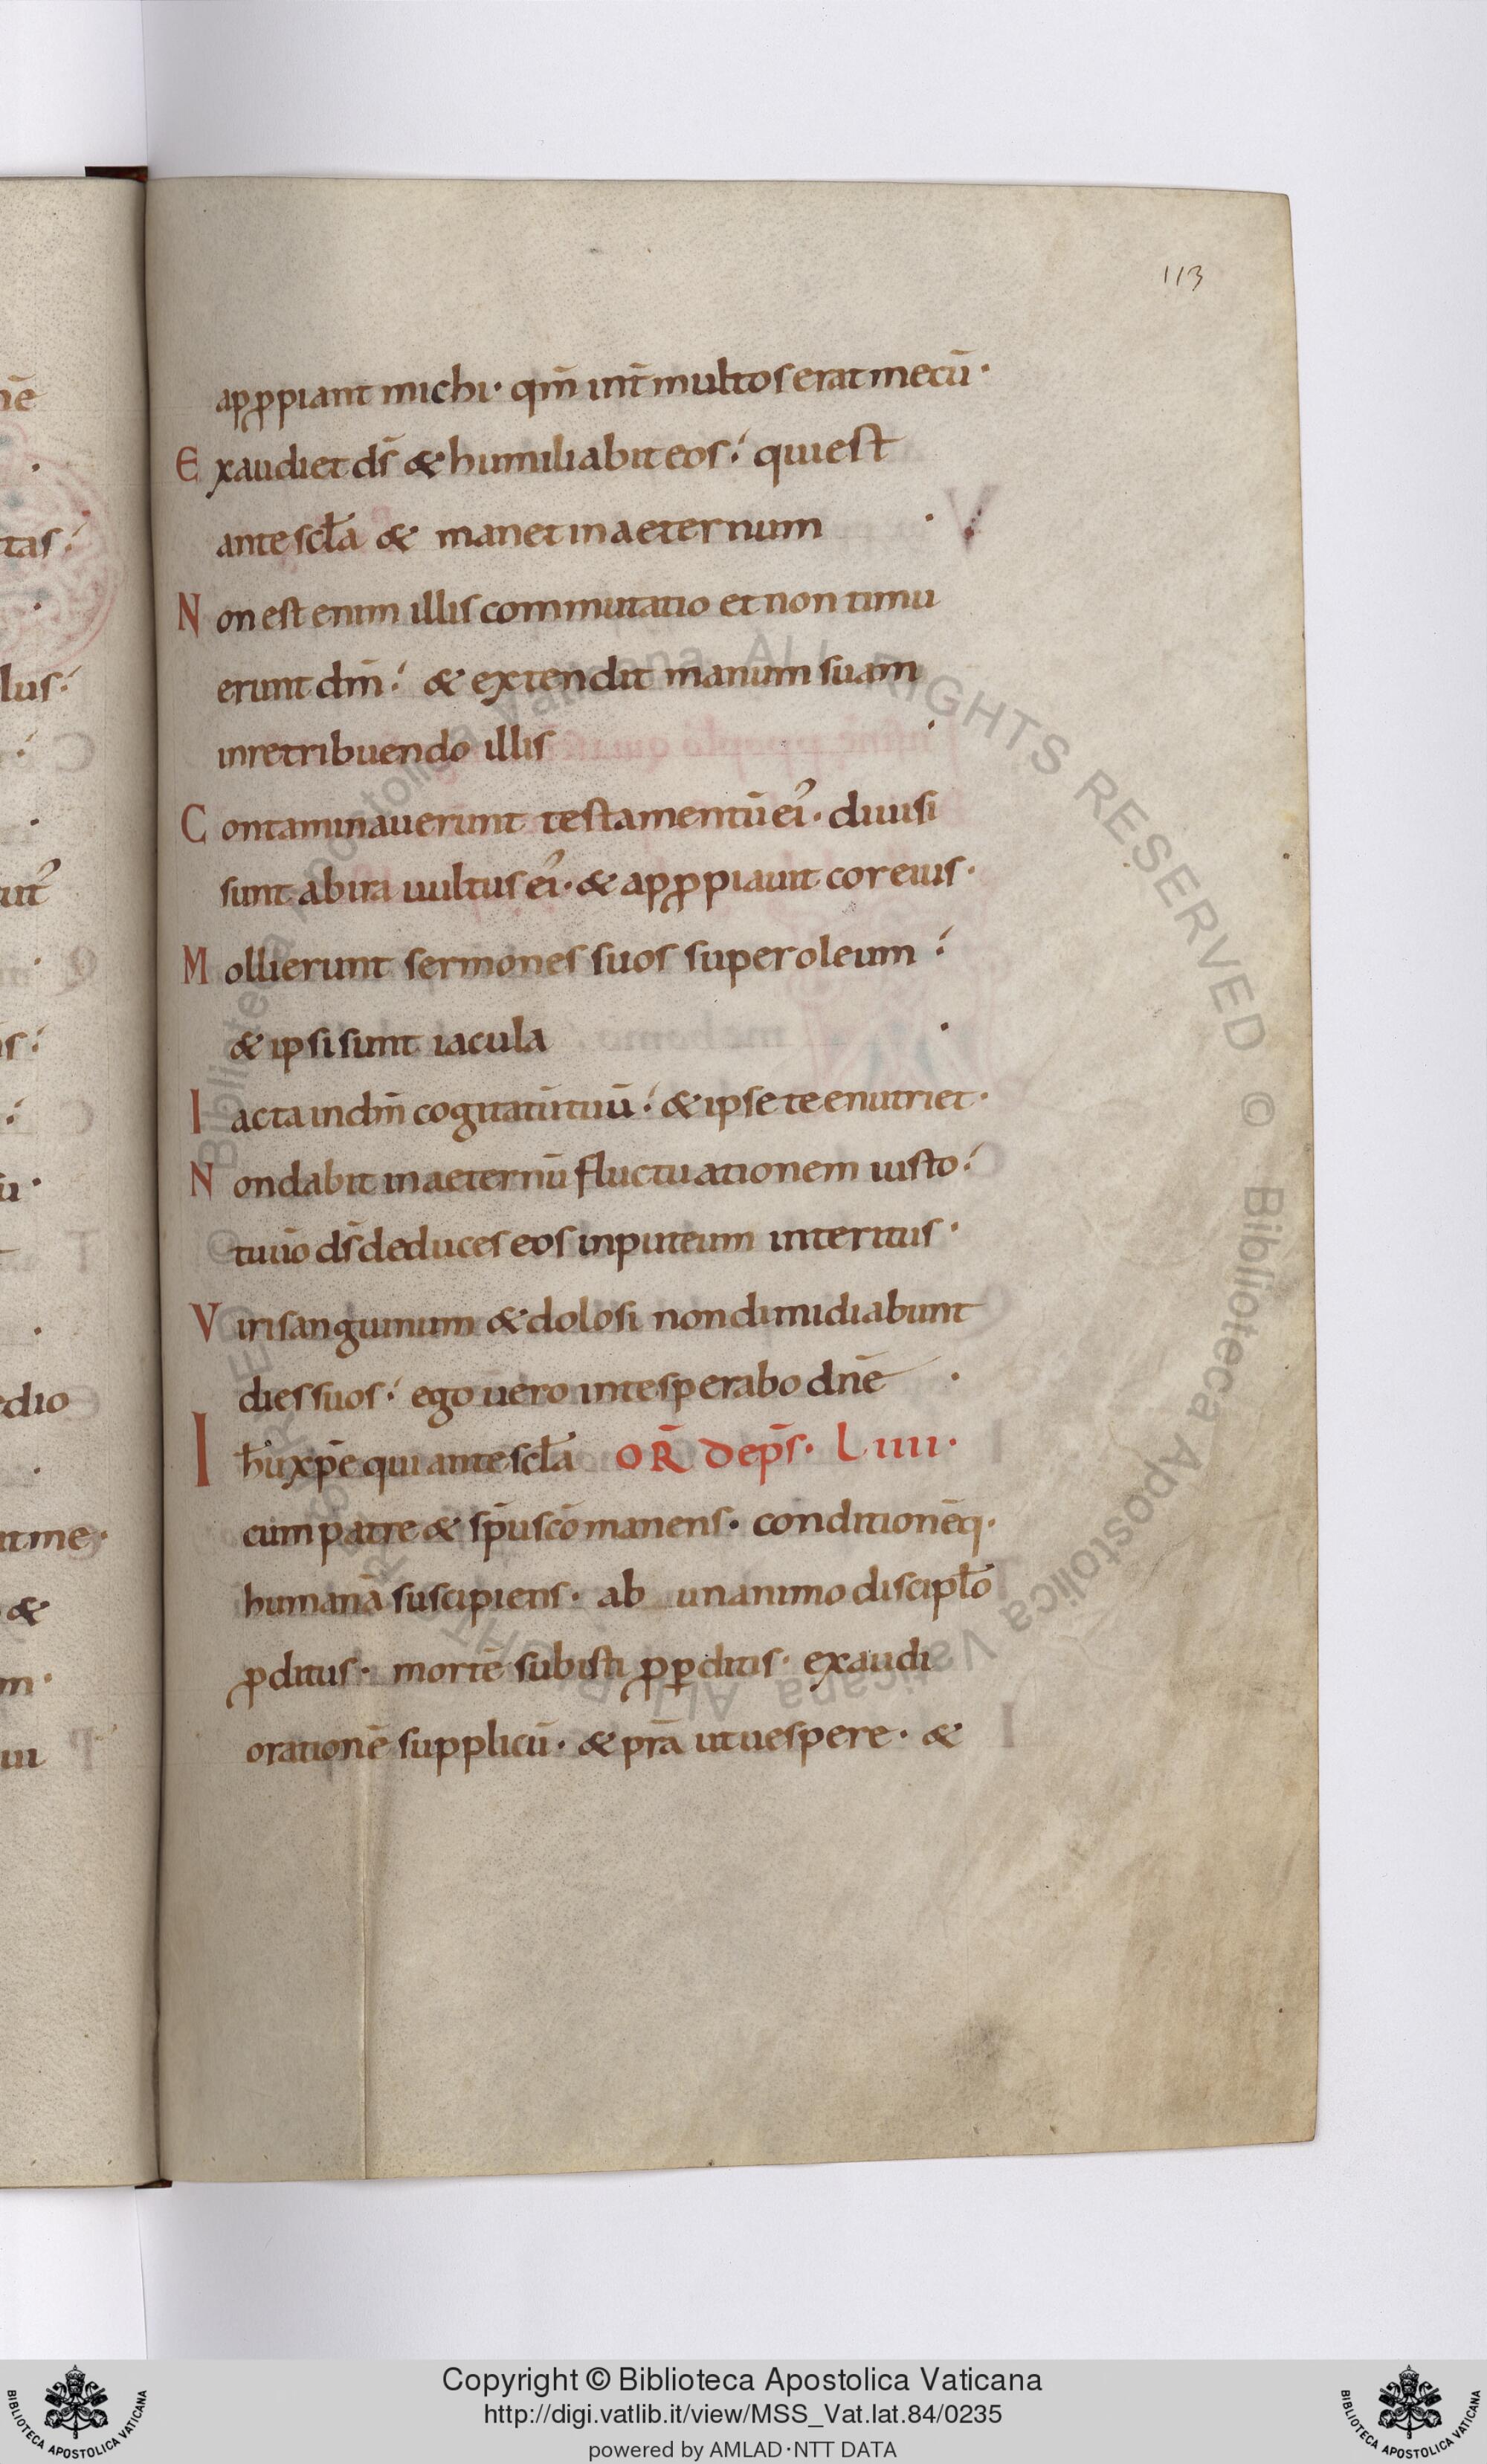 113
apꝓpiant michi· qm̄ int̄ multos erat mecū·
Exaudiet ds̄ & humiliabit eos·́ qui est
ante scl̄a & manet in aeternum ·
Non est enim illis commutatio et non timu
erunt dm̄·́ & extendit manum suam
in retribuendo illis ·
Contaminauerunt testamentū ei᾽· diuisi
sunt ab ira uultus ei᾽· & apꝓpiauit cor eius·
Mollierunt sermones suos super oleum·́
& ipsi sunt iacula ·
Iacta in dm̄ cogitatū tuū·́ & ipse te enutriet·
Non dabit in aeternū fluctuationem iusto·́
tu ū̄o ds̄ deduces eos in puteum interitus·
Viri sanguinum & dolosi non dimidiabunt
dies suos·́ ego uero in te sperabo dnē ·
Ih̄u xp̄e qui ante scl̄a OR̄ De ps̄· Liiii·
cum patre & sp̄u scō manens· conditionēq·
humanā suscipiens· ab unanimo discipl̄o
ꝓditus· mortē subisti ꝓ ꝑditis· exaudi
orationē supplicū· & pr̄a ut uespere· &
nē
tas·́
lus·́
edio
it me·
&
m·
ui
Biblioteca Apostolica Vaticana ALL RIGHTS RESERVED ©
Copyright © Biblioteca Apostolica Vaticana
http://digi.vatlib.it/view/MSS_Vat.lat.84/0235
powered by AMLAD·NTT DATA
BIBLIOTECA APOSTOLICA VATICANA
BIBLIOTECA APOSTOLICA VATICANA